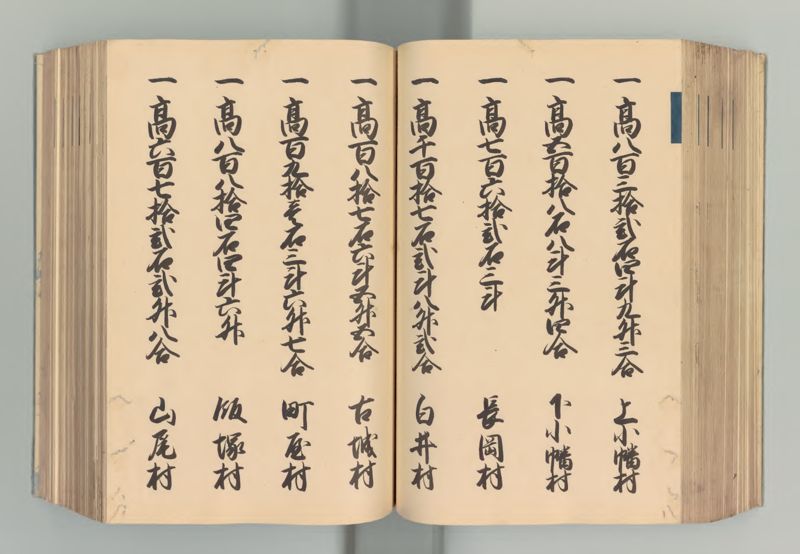 一 高八百三拾弐石四斗九升三合 上小幡村
一 高五百拾八石八斗三升四合 下小幡村
一 高七百六拾弐石三斗 長岡村
一 高千百拾七石弐斗八升弐合 白井村
一 高百八拾七石六斗五升五合 古城村
一 高百九拾壱石三斗六升七合 町屋村
一 高八百八拾四石四斗六升 飯塚村
一 高六百七拾弐石弐升八合 山尾村